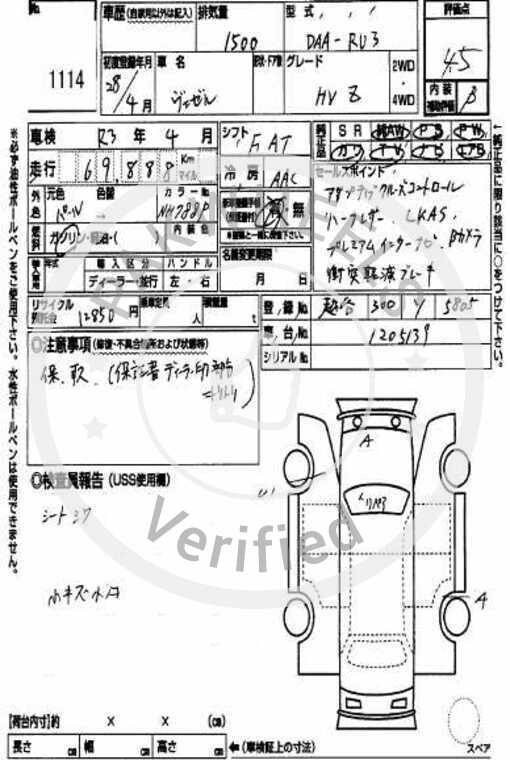 No. 1114
車歴 (自家用以外は記入) 排気量 1500
型式 DAA-RU3
評価点 4.5
初度登録年月 28/4月
車名 ヴェゼル
形状・ドア数
グレード HV Z
2WD・4WD
内装補助評価 B
車検 R3年4月
シフト FAT
純正品 SR 純AW PS PW
カワ TV ナビ エアB
走行 69,888 Km マイル
冷房 AAC
セールスポイント
外色 元色 パール 色替 →
カラーNo. NH788P
内装色
有 無
アダプティブクルーズコントロール
ハーフレザー. LKAS.
プレミアムインターナビ Bカメラ
衝突軽減ブレーキ
燃料 ガソリン・軽油・(
名義変更期限 月 日
輸入車用 年式 輸入区分 ハンドル
ディーラー・並行 左・右
リサイクル預託金 12850円
乗車定員 人
積載量 t
登録No. 越谷 300 5805
車台No. 1205139
シリアルNo.
◎注意事項 (修復・不具合箇所および状態等)
保.取. (保証書ディーラー印部分
◎検査員報告 (USS使用欄)
シートシワ
小キズ小凹
A
A
【荷台内寸】約 × × (cm)
長さ cm 幅 cm 高さ cm ←(車検証上の寸法)
スペア
※必ず油性ボールペンをご使用下さい。水性ボールペンは使用できません。
←純正品に限り該当に○をつけて下さい。
Verified